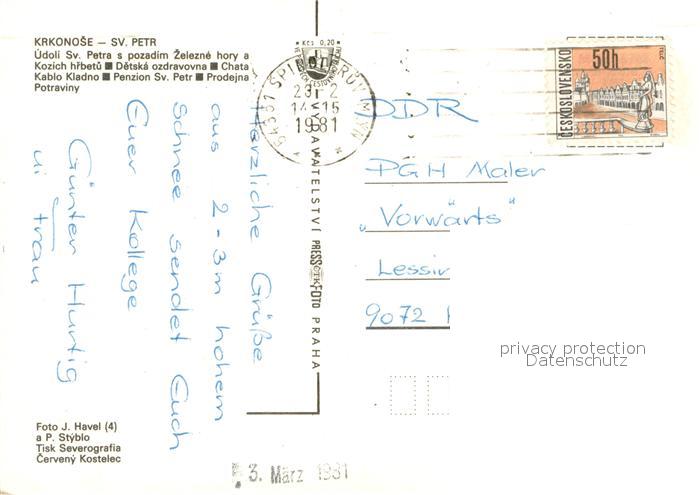 KRKONOŠE — SV. PETR
Údolí Sv. Petra s pozadím Železné hory a
Kozích hřbetů ■ Dětská ozdravovna ■ Chata
Kablo Kladno ■ Penzion Sv. Petr ■ Prodejna
Potraviny
Herzliche Grüße
aus 2-3m hohem
Schnee sendet Euch
Euer Kollege
Günter Hurtig
u. Frau
Foto J. Havel (4)
a P. Stýblo
Tisk Severografia
Červený Kostelec
Kčs 0,20
VYDAVATELSTVÍ PRESSFOTO PRAHA
543 51
23. 2
14-15
1981
50h
ČESKOSLOVENSKO
TELČ
DDR
PGH Maler
„Vorwärts"
Lessin
9072
privacy protection
Datenschutz
3. März 1981